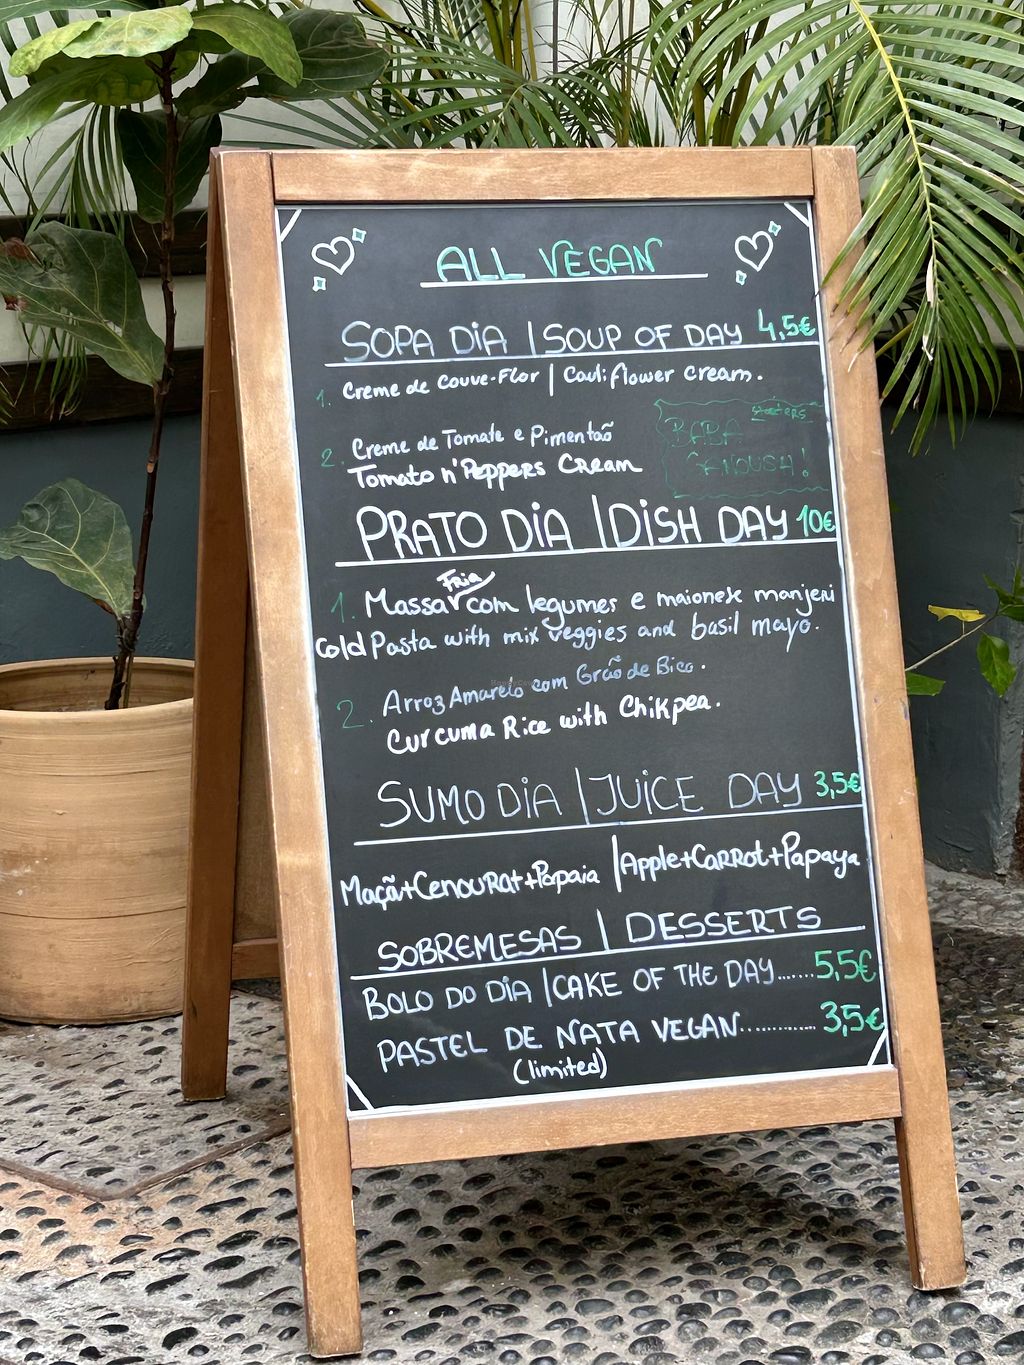 ALL VEGAN
SOPA DIA | SOUP OF DAY 4,5€
1. Creme de Couve-Flor | Cauliflower Cream.
2. Creme de Tomate e Pimentaõ
Tomato n' Peppers Cream
BABA
GANOUSH!
PRATO DIA | DISH DAY 10€
Fria
1. Massa com legumes e maionese manjeri
Cold Pasta with mix veggies and basil mayo.
2. Arroz Amarelo com Grão de Bico.
Curcuma Rice with Chikpea.
SUMO DIA | JUICE DAY 3,5€
Maçã+Cenoura+Papaia | Apple+Carrot+Papaya
SOBREMESAS | DESSERTS
BOLO DO DIA | CAKE OF THE DAY.......5,5€
PASTEL DE NATA VEGAN.............. 3,5€
(limited)